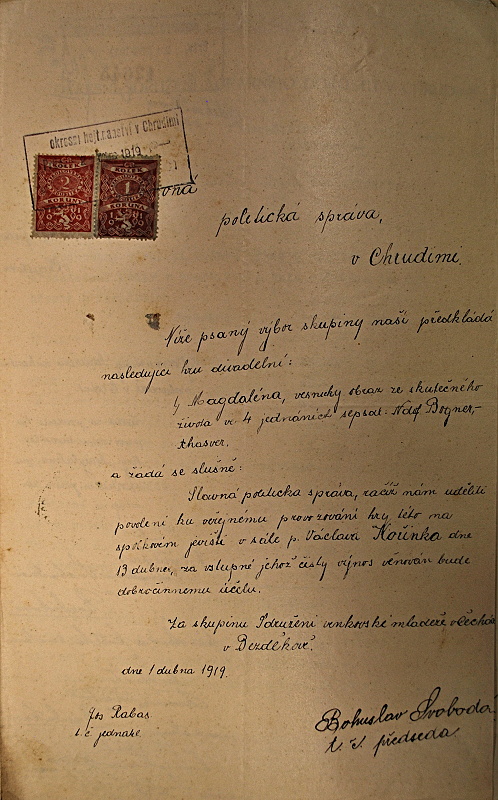 okresní hejtmanství v Chrudimi
1919
KOLEK
2
KORUNY
KOLEK
1
KORUNA
vná
politická správa,
v Chrudimi.
Níže psaný výbor skupiny naší předkládá
následující hru divadelní:
1) Magdaléna, vesnický obraz ze skutečného
života ve 4 jednáních sepsal: Bogner-
Ahasver.
a žádá se slušně:
Slavná politická správa, račiž nám uděliti
povolení ku veřejnému provozování hry této na
spolkovém jevišti v sále p. Václava Kořínka dne
13 dubna, za vstupné jehož čistý výnos věnován bude
dobročinnému účelu.
Za skupinu Sdružení venkovské mládeže v Čechách
v Bezděkově.
dne 1 dubna 1919.
Jos Rabas
t. č. jednatel
Bohuslav Svoboda
t. č. předseda.